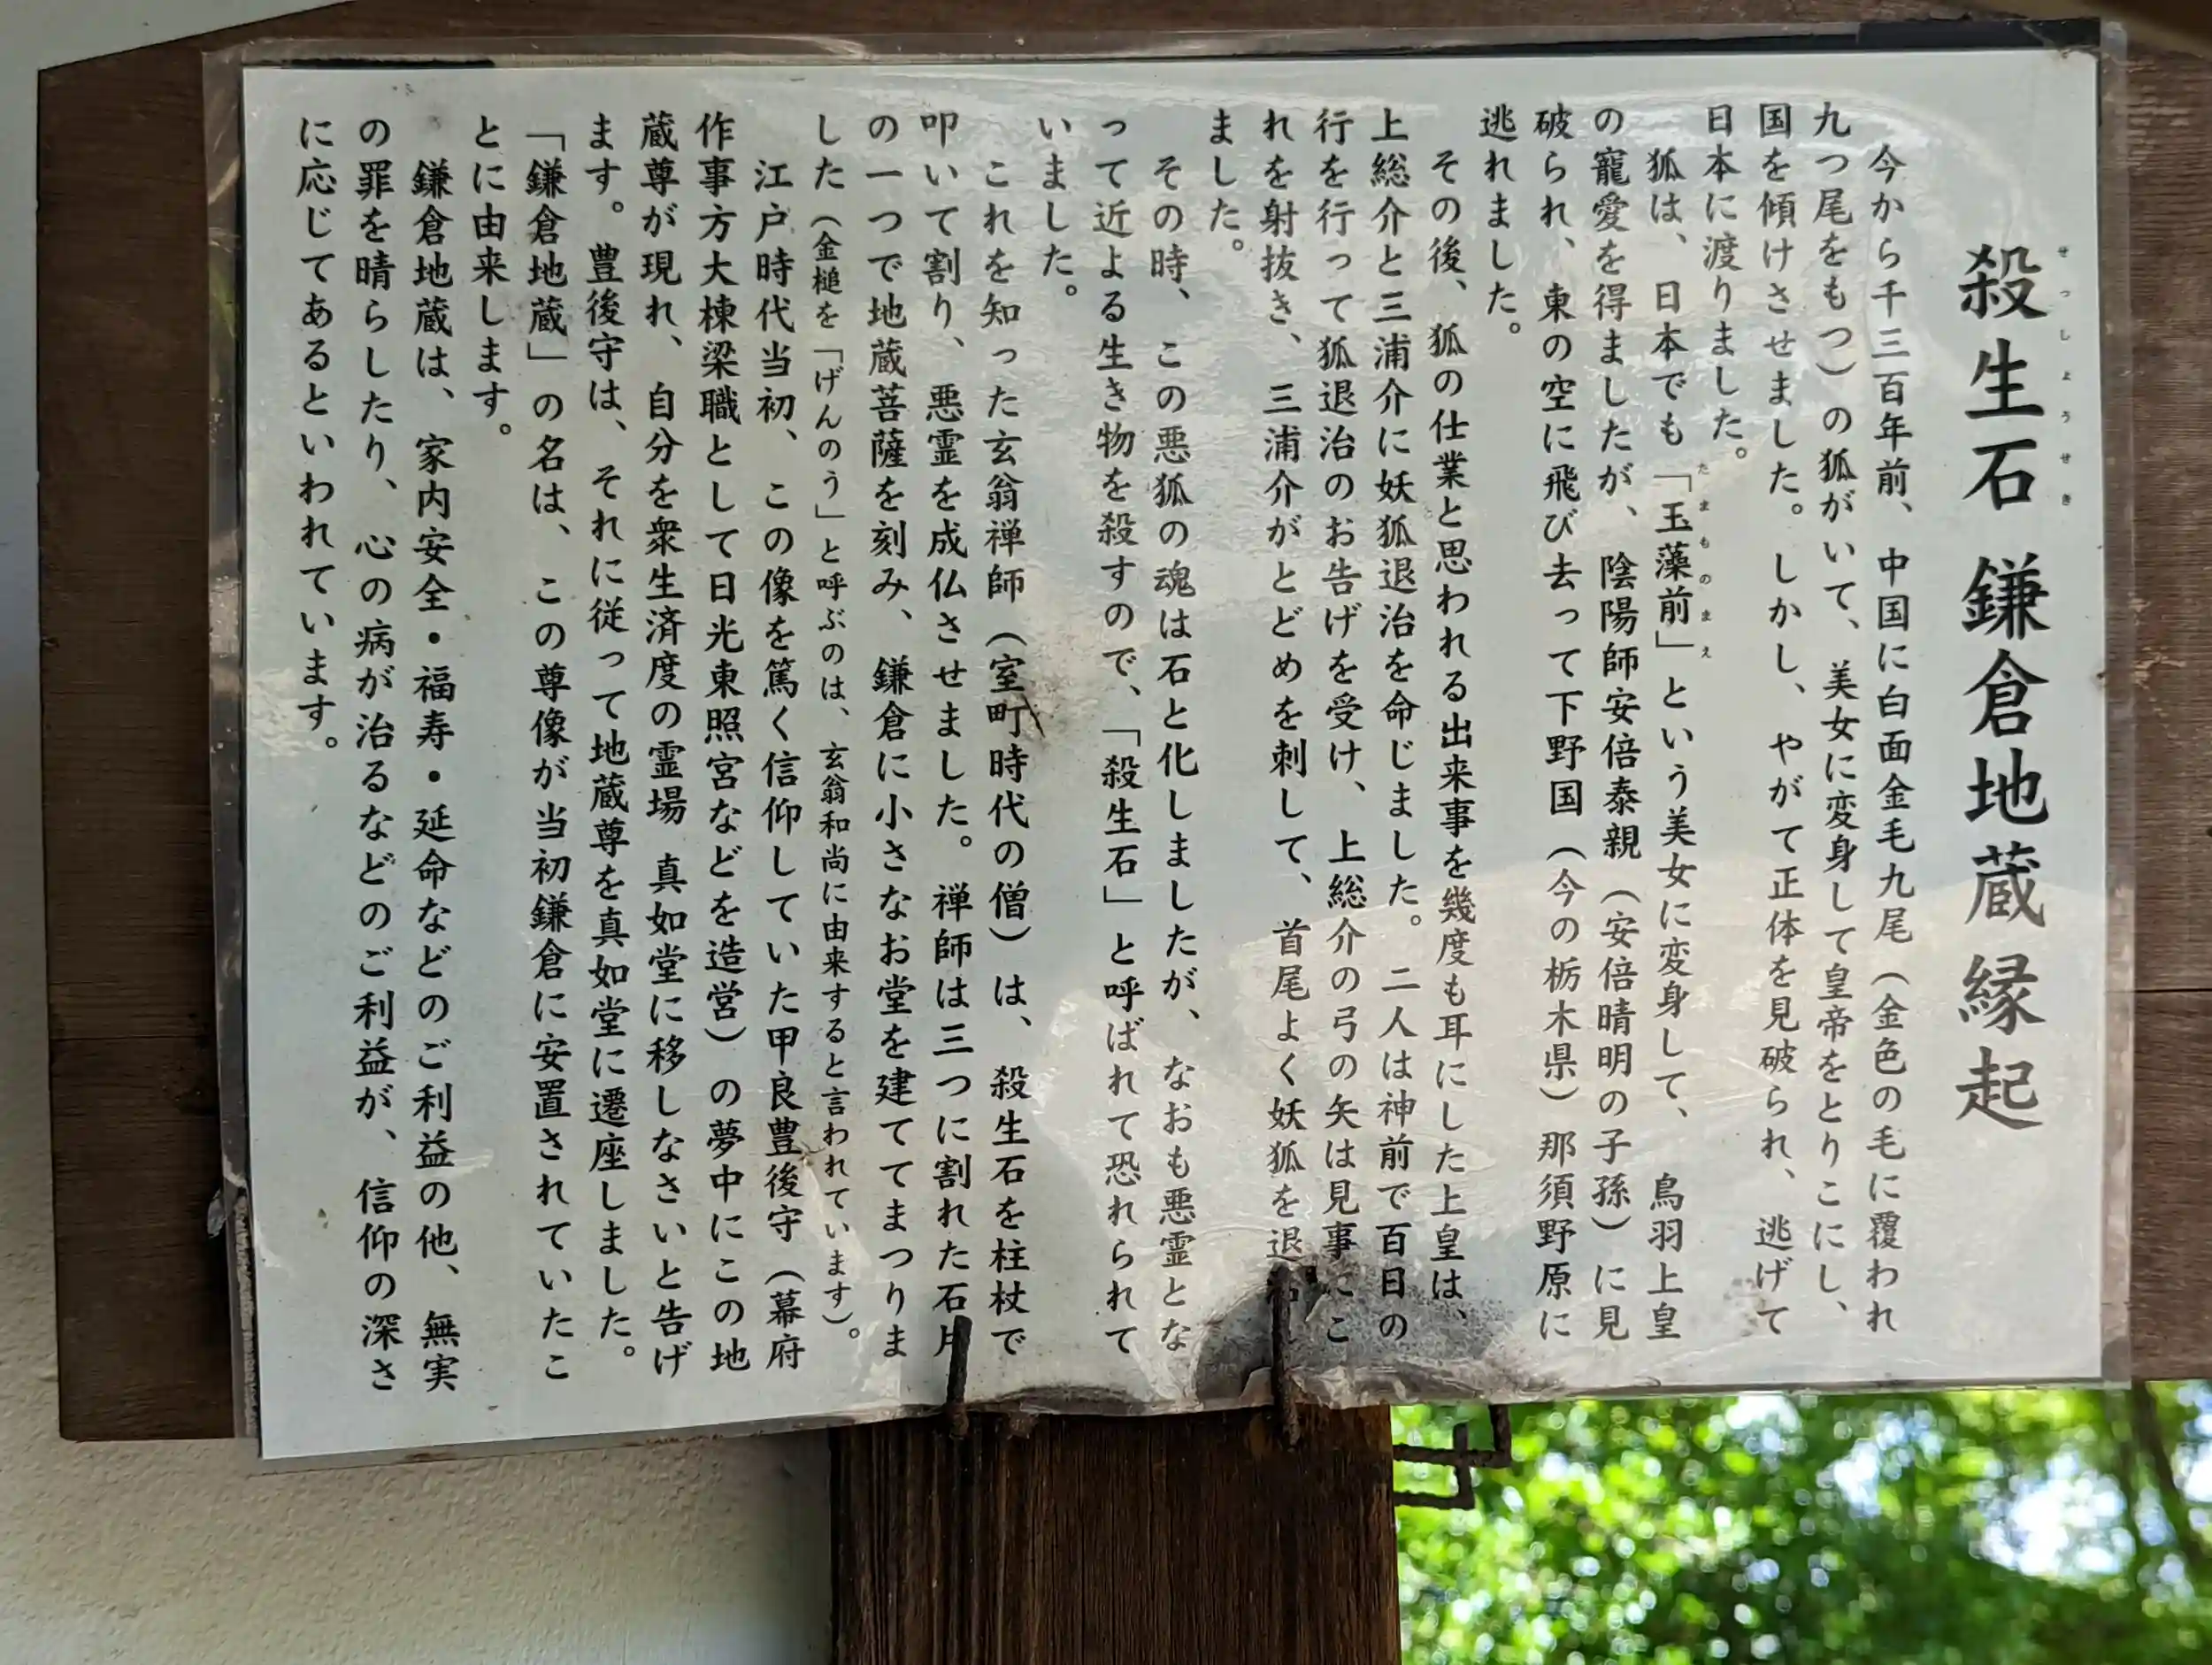 殺生石 鎌倉地蔵縁起
せっしょうせき
今から千三百年前、中国に白面金毛九尾（金色の毛に覆われ
九つ尾をもつ）の狐がいて、美女に変身して皇帝をとりこにし、
国を傾けさせました。しかし、やがて正体を見破られ、逃げて
日本に渡りました。
狐は、日本でも「玉藻前」という美女に変身して、鳥羽上皇
たまものまえ
の寵愛を得ましたが、陰陽師安倍泰親（安倍晴明の子孫）に見
破られ、東の空に飛び去って下野国（今の栃木県）那須野原に
逃れました。
その後、狐の仕業と思われる出来事を幾度も耳にした上皇は、
上総介と三浦介に妖狐退治を命じました。二人は神前で百日の
行を行って狐退治のお告げを受け、上総介の弓の矢は見事にこ
れを射抜き、三浦介がとどめを刺して、首尾よく妖狐を退し
ました。
その時、この悪狐の魂は石と化しましたが、なおも悪霊とな
って近よる生き物を殺すので、「殺生石」と呼ばれて恐れられて
いました。
これを知った玄翁禅師（室町時代の僧）は、殺生石を柱杖で
叩いて割り、悪霊を成仏させました。禅師は三つに割れた石片
の一つで地蔵菩薩を刻み、鎌倉に小さなお堂を建ててまつりま
した（金槌を「げんのう」と呼ぶのは、玄翁和尚に由来すると言われています）。
江戸時代当初、この像を篤く信仰していた甲良豊後守（幕府
作事方大棟梁職として日光東照宮などを造営）の夢中にこの地
蔵尊が現れ、自分を衆生済度の霊場 真如堂に移しなさいと告げ
ます。豊後守は、それに従って地蔵尊を真如堂に遷座しました。
「鎌倉地蔵」の名は、この尊像が当初鎌倉に安置されていたこ
とに由来します。
鎌倉地蔵は、家内安全・福寿・延命などのご利益の他、無実
の罪を晴らしたり、心の病が治るなどのご利益が、信仰の深さ
に応じてあるといわれています。